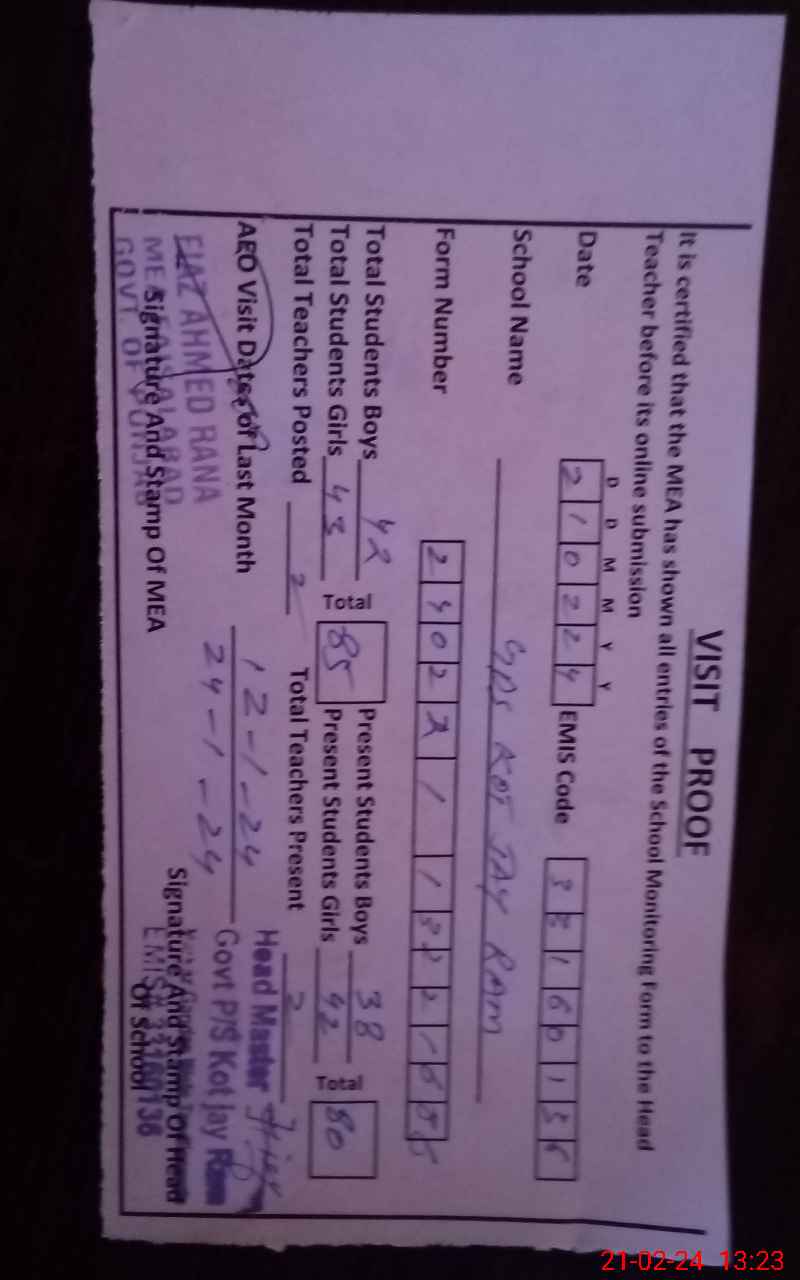 VISIT PROOF
It is certified that the MEA has shown all entries of the School Monitoring Form to the Head
Teacher before its online submission
D D M M Y Y
Date 2 1 0 2 2 4 EMIS Code 3 3 1 6 0 1 3 6
School Name GPS KOT JAY RAM
Form Number 2 4 0 2 2 1 1 3 2 2 1 6 0
Total Students Boys 42 Present Students Boys 38
Total Students Girls 43 Total 85 Present Students Girls 42 Total 80
Total Teachers Posted 2 Total Teachers Present 2
AEO Visit Dates of Last Month 12-1-24
24-1-24
Head Master
Govt P/S Kot Jay Ram
EMIS# 33160136
EIAZ AHMED RANA
MEA FAISALABAD
GOVT. OF PUNJAB
Signature And Stamp Of MEA
Signature And Stamp Of Head
Of School
21-02-24 13:23